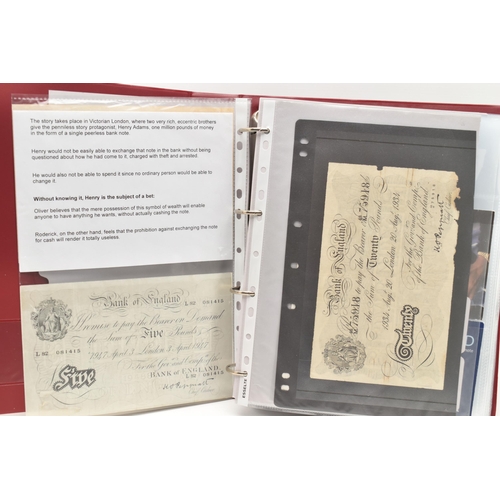 The story takes place in Victorian London, where two very rich, eccentric brothers
give the penniless story protagonist, Henry Adams, one million pounds of money
in the form of a single peerless bank note
Henry would not be easily able to exchange that note in the bank without being
questioned about how he had come to it, charged with theft and arrested
He would also not be able to spend it since no ordinary person would be able to
change it.
Without knowing it, Henry is the subject of a bet:
Oliver believes that the mere possession of this symbol of wealth will enable
anyone to have anything he wants, without actually cashing the note
Roderick, on the other hand, feels that the prohibition against exchanging the note
for cash will render it totally useless.
Bank of England
L92 081415
Promise to pay the Bearer on Demand
the Sum of Five Pounds
L92 081415
1947 April 3 London 3 April 1947
For the Gov. and Comp. of the
BANK OF ENGLAND
Five
Chief Cashier
Bank of England
75948
to pay the Bearer
75948
the Sum of Twenty Pounds
1934 Aug. 20 London 20 Aug. 1934
For the Gov. and Comp.
of the Bank of England
Twenty